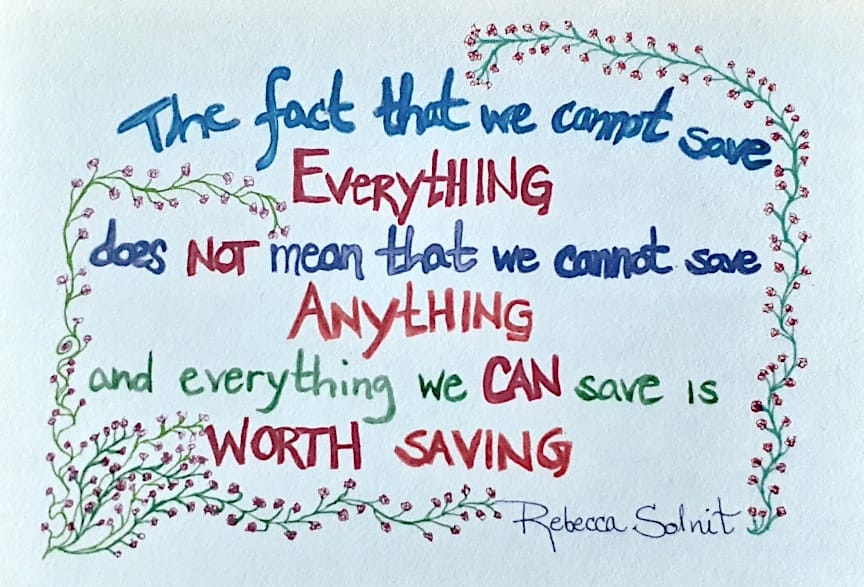 The fact that we cannot save
EVERYtHING
does NOT mean that we cannot save
ANYtHING
and everything we CAN save is
WORTH SAVING
Rebecca Solnit